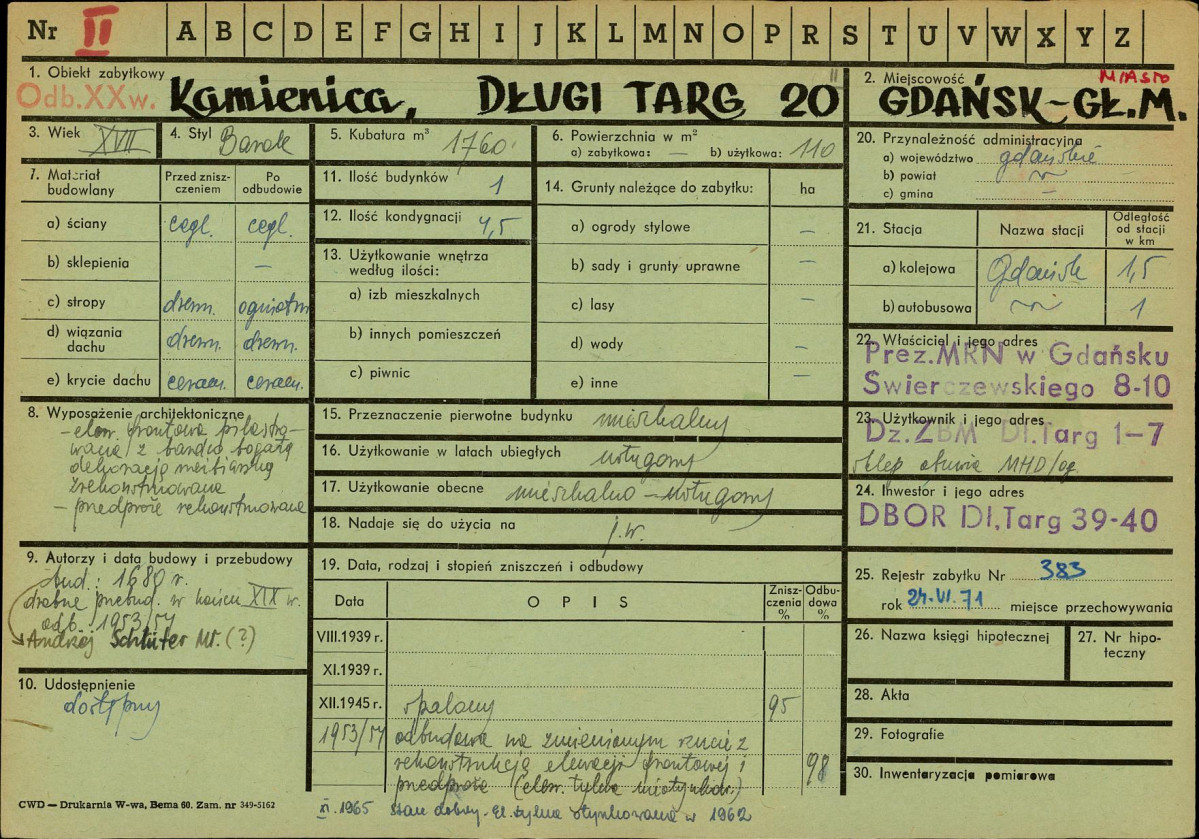 Nr II A B C D E F G H I J K L M N O P R S T U V W X Y Z
1. Obiekt zabytkowy
Odb. XX w. Kamienica, DŁUGI TARG 20 II
2. Miejscowość MIASTO
GDAŃSK-GŁ.M.
3. Wiek XVII
4. Styl Barok
5. Kubatura m³ 1760
6. Powierzchnia w m²
a) zabytkowa: — b) użytkowa: 110
7. Materiał budowlany
Przed zniszczeniem
Po odbudowie
a) ściany cegl. cegl.
b) sklepienia —
c) stropy drewn. ogniotrw
d) wiązania dachu drewn. drewn.
e) krycie dachu ceram. ceram.
8. Wyposażenie architektoniczne
- elew. frontowa pilastro-
wana z bardzo bogatą
dekoracją rzeźbiarską
zrekonstruowana
- przedproże rekonstruowane
9. Autorzy i data budowy i przebudowy
bud.: 1680 r.
drobne przebud. w końcu XIX w.
odb. 1953/54
Andrzej Schlüter Mł. (?)
10. Udostępnienie
dostępny
11. Ilość budynków 1
12. Ilość kondygnacji 4,5
13. Użytkowanie wnętrza
według ilości:
a) izb mieszkalnych
b) innych pomieszczeń
c) piwnic
14. Grunty należące do zabytku: ha
a) ogrody stylowe —
b) sady i grunty uprawne —
c) lasy —
d) wody —
e) inne —
15. Przeznaczenie pierwotne budynku mieszkalny
16. Użytkowanie w latach ubiegłych usługowy
17. Użytkowanie obecne mieszkalno - usługowy
18. Nadaje się do użycia na j.w.
19. Data, rodzaj i stopień zniszczeń i odbudowy
Data
OPIS
Zniszczenia %
Odbudowa %
VIII.1939 r.
XI.1939 r.
XII.1945 r. spalony 95
1953/54 odbudowa na zmienionym rzucie z
rekonstrukcją elewacji frontowej i 98
przedproże (elew. tylna nieotynkow.)
XI. 1965 stan dobry - el. tylna otynkowana w 1962
20. Przynależność administracyjna
a) województwo gdańskie
b) powiat
c) gmina —
21. Stacja
Nazwa stacji
Odległość
od stacji
w km
a) kolejowa Gdańsk 1,5
b) autobusowa 1
22. Właściciel i jego adres
Prez.MRN w Gdańsku
Swierczewskiego 8-10
23. Użytkownik i jego adres
Dz.ZBM Dl.Targ 1-7
sklep obuwia MHD
24. Inwestor i jego adres
DBOR Dl.Targ 39-40
25. Rejestr zabytku Nr 383
rok 24.VI.71 miejsce przechowywania
26. Nazwa księgi hipotecznej
27. Nr hipo-
teczny
28. Akta
29. Fotografie
30. Inwentaryzacja pomiarowa
CWD — Drukarnia W-wa, Bema 60. Zam. nr 349-5162